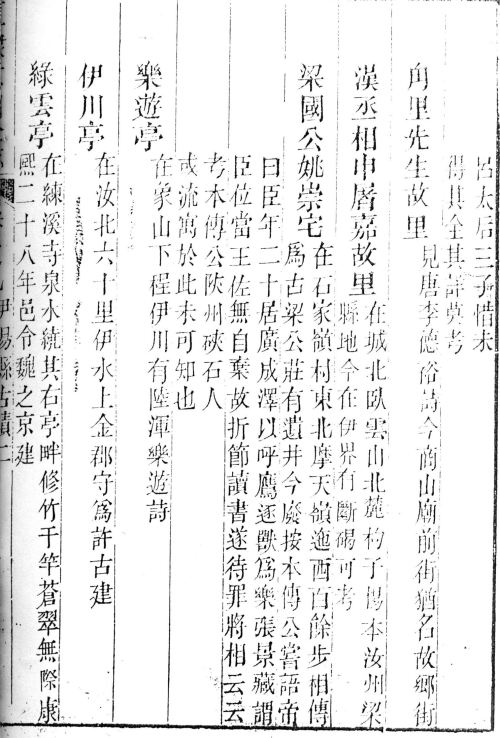 呂太后三子惜未
得其全其詳莫考
甪里先生故里
見唐李德裕詩今商山廟前街猶名故鄉街
漢丞相申屠嘉故里
在城北臥雲山北麓杓子場本汝州梁
縣地今在伊界有斷碣可考
梁國公姚崇宅
在石家嶺村東北摩天嶺迤西百餘步相傳
爲古梁公莊有遺井今廢按本傳公嘗語帝
曰臣年二十居廣成澤以呼鷹逐獸爲樂張景藏謂
臣位當王佐無自棄故折節讀書遂待罪將相云云
考本傳公陜州硤石人
或流寓於此未可知也
樂遊亭
在象山下程伊川有陸渾樂遊詩
伊川亭
在汝北六十里伊水上金郡守爲許古建
綠雲亭
在練溪寺泉水繞其右亭畔修竹千竿蒼翠無際康
熙二十八年邑令魏之京建
伊陽縣古蹟二